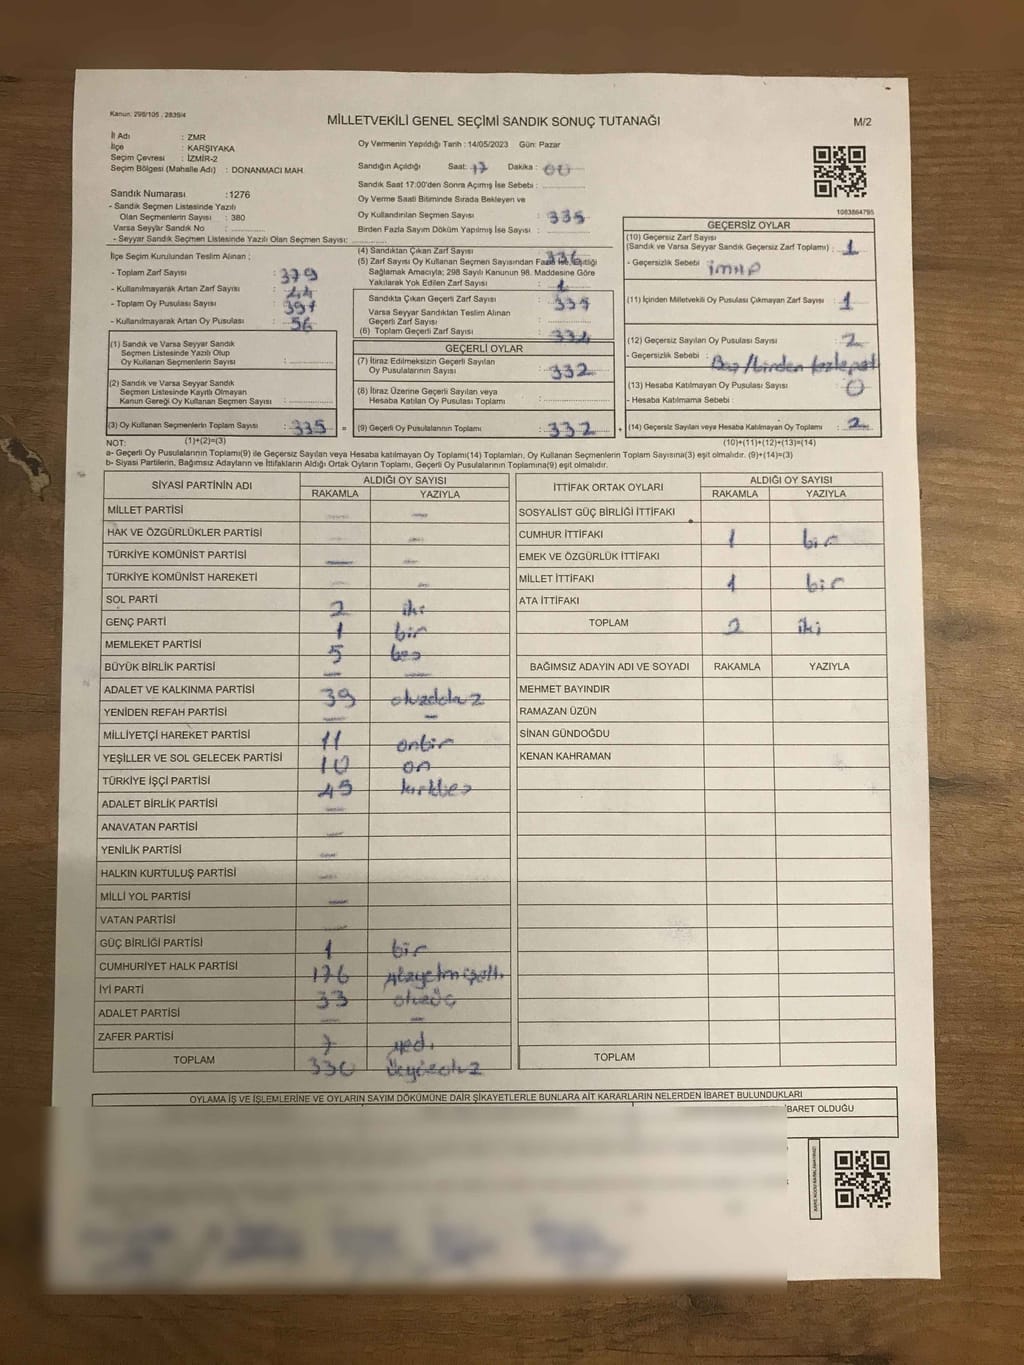 Kanun: 298/105 , 2839/4
MİLLETVEKİLİ GENEL SEÇİMİ SANDIK SONUÇ TUTANAĞI
M/2
İl Adı : ZMR
İlçe : KARŞIYAKA
Seçim Çevresi : İZMİR-2
Seçim Bölgesi (Mahalle Adı) : DONANMACI MAH.
Sandık Numarası :1276
- Sandık Seçmen Listesinde Yazılı
Olan Seçmenlerin Sayısı : 380
Varsa Seyyar Sandık No :
- Seyyar Sandık Seçmen Listesinde Yazılı Olan Seçmen Sayısı:
Oy Vermenin Yapıldığı Tarih : 14/05/2023 Gün: Pazar
Sandığın Açıldığı Saat: 17 Dakika : 00
Sandık Saat 17:00'den Sonra Açımış İse Sebebi :
Oy Verme Saati Bitiminde Sırada Bekleyen ve
Oy Kullandırılan Seçmen Sayısı : 335
Birden Fazla Sayım Döküm Yapılmış İse Sayısı :
1083864795
İlçe Seçim Kurulundan Teslim Alınan ;
- Toplam Zarf Sayısı : 379
- Kullanılmayarak Artan Zarf Sayısı : 44
- Toplam Oy Pusulası Sayısı :
- Kullanılmayarak Artan Oy Pusulası : 56
(1) Sandık ve Varsa Seyyar Sandık
Seçmen Listesinde Yazılı Olup
Oy Kullanan Seçmenlerin Sayısı :
(2) Sandık ve Varsa Seyyar Sandık
Seçmen Listesinde Kayıtlı Olmayan
Kanun Gereği Oy Kullanan Seçmen Sayısı :
(3) Oy Kullanan Seçmenlerin Toplam Sayısı : 335 =
(4) Sandıktan Çıkan Zarf Sayısı : 336
(5) Zarf Sayısı Oy Kullanan Seçmen Sayısından Fazla İse, Eşitliği
Sağlamak Amacıyla; 298 Sayılı Kanunun 98. Maddesine Göre
Yakılarak Yok Edilen Zarf Sayısı : 1
Sandıkta Çıkan Geçerli Zarf Sayısı :
Varsa Seyyar Sandıktan Teslim Alınan
Geçerli Zarf Sayısı :
(6) Toplam Geçerli Zarf Sayısı : 334
GEÇERLİ OYLAR
(7) İtiraz Edilmeksizin Geçerli Sayılan
Oy Pusulalarının Sayısı : 332
(8) İtiraz Üzerine Geçerli Sayılan veya
Hesaba Katılan Oy Pusulası Toplamı :
(9) Geçerli Oy Pusulalarının Toplamı : 332 +
GEÇERSİZ OYLAR
(10) Geçersiz Zarf Sayısı
(Sandık ve Varsa Seyyar Sandık Geçersiz Zarf Toplamı) : 1
- Geçersizlik Sebebi :
(11) İçinden Milletvekili Oy Pusulası Çıkmayan Zarf Sayısı : 1
(12) Geçersiz Sayılan Oy Pusulası Sayısı : 2
- Geçersizlik Sebebi : Boş/birden
(13) Hesaba Katılmayan Oy Pusulası Sayısı : 0
- Hesaba Katılmama Sebebi :
(14) Geçersiz Sayılan veya Hesaba Katılmayan Oy Toplamı : 2
NOT: (1)+(2)=(3)
(10)+(11)+(12)+(13)=(14)
a- Geçerli Oy Pusulalarının Toplamı(9) ile Geçersiz Sayılan veya Hesaba katılmayan Oy Toplamı(14) Toplamları, Oy Kullanan Seçmenlerin Toplam Sayısına(3) eşit olmalıdır. (9)+(14)=(3)
b- Siyasi Partilerin, Bağımsız Adayların ve İttifakların Aldığı Ortak Oyların Toplamı, Geçerli Oy Pusulalarının Toplamına(9) eşit olmalıdır.
SİYASİ PARTİNİN ADI ALDIĞI OY SAYISI
RAKAMLA YAZIYLA
MİLLET PARTİSİ — —
HAK VE ÖZGÜRLÜKLER PARTİSİ — —
TÜRKİYE KOMÜNİST PARTİSİ — —
TÜRKİYE KOMÜNİST HAREKETİ — —
SOL PARTİ 2 iki
GENÇ PARTİ 1 bir
MEMLEKET PARTİSİ 5 beş
BÜYÜK BİRLİK PARTİSİ — —
ADALET VE KALKINMA PARTİSİ 39 otuzdokuz
YENİDEN REFAH PARTİSİ — —
MİLLİYETÇİ HAREKET PARTİSİ 11 onbir
YEŞİLLER VE SOL GELECEK PARTİSİ 10 on
TÜRKİYE İŞÇİ PARTİSİ 45 kırkbeş
ADALET BİRLİK PARTİSİ —
ANAVATAN PARTİSİ —
YENİLİK PARTİSİ —
HALKIN KURTULUŞ PARTİSİ —
MİLLİ YOL PARTİSİ —
VATAN PARTİSİ —
GÜÇ BİRLİĞİ PARTİSİ 1 bir
CUMHURİYET HALK PARTİSİ 176 yüzyetmişaltı
İYİ PARTİ 33 otuzüç
ADALET PARTİSİ — —
ZAFER PARTİSİ 7 yedi
TOPLAM 330 üçyüzotuz
İTTİFAK ORTAK OYLARI ALDIĞI OY SAYISI
RAKAMLA YAZIYLA
SOSYALİST GÜÇ BİRLİĞİ İTTİFAKI
CUMHUR İTTİFAKI 1 bir
EMEK VE ÖZGÜRLÜK İTTİFAKI
MİLLET İTTİFAKI 1 bir
ATA İTTİFAKI
TOPLAM 2 iki
BAĞIMSIZ ADAYIN ADI VE SOYADI RAKAMLA YAZIYLA
MEHMET BAYINDIR
RAMAZAN ÜZÜN
SİNAN GÜNDOĞDU
KENAN KAHRAMAN
TOPLAM
OYLAMA İŞ VE İŞLEMLERİNE VE OYLARIN SAYIM DÖKÜMÜNE DAİR ŞİKAYETLERLE BUNLARA AİT KARARLARIN NELERDEN İBARET BULUNDUKLARI
İBARET OLDUĞU